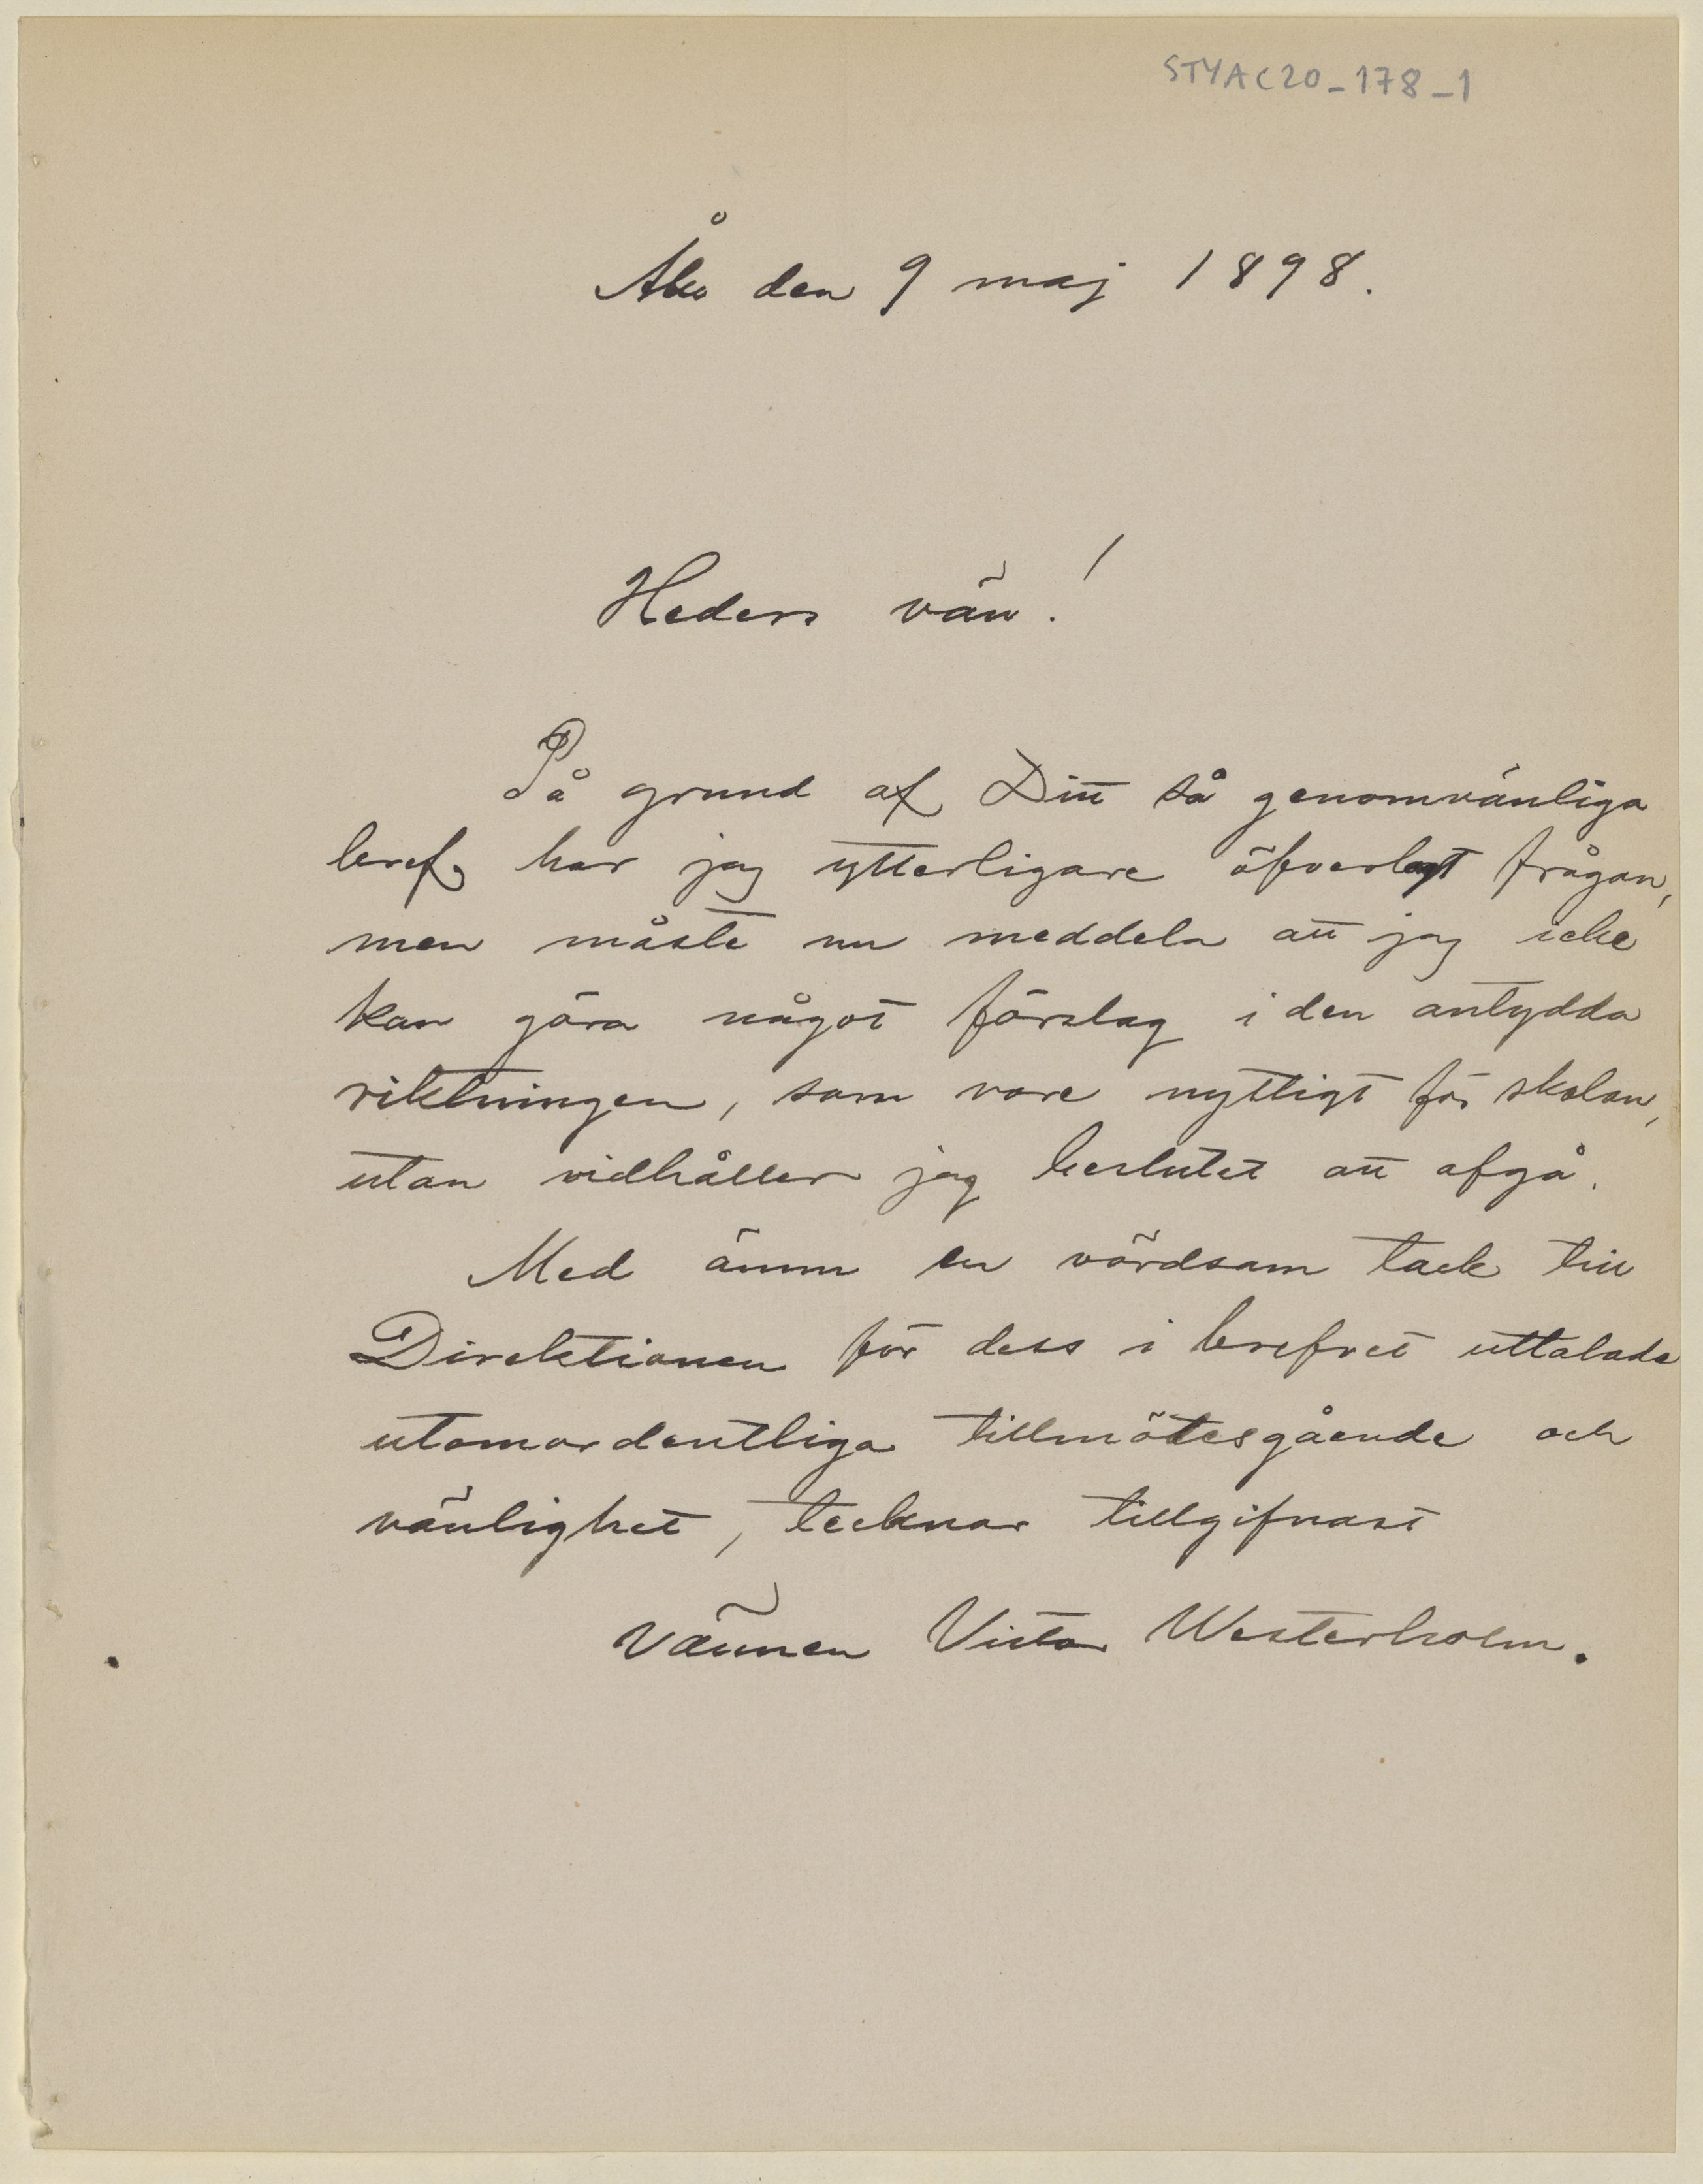 STYAC20_178_1
Åbo den 9 maj 1898.
Heders vän!
På grund af Ditt så genomvänliga
bref har jag ytterligare öfverlagt frågan,
men måste nu meddela att jag icke
kan göra något förslag i den antydda
riktningen, som vore nyttigt för skolan,
utan vidhåller jag beslutet att afgå.
Med ännu en vördsam tack till
Direktionen för dess i brefvet uttalade
utomordentliga tillmötesgående och
vänlighet, tecknar tillgifnast
Vännen Victor Westerholm.